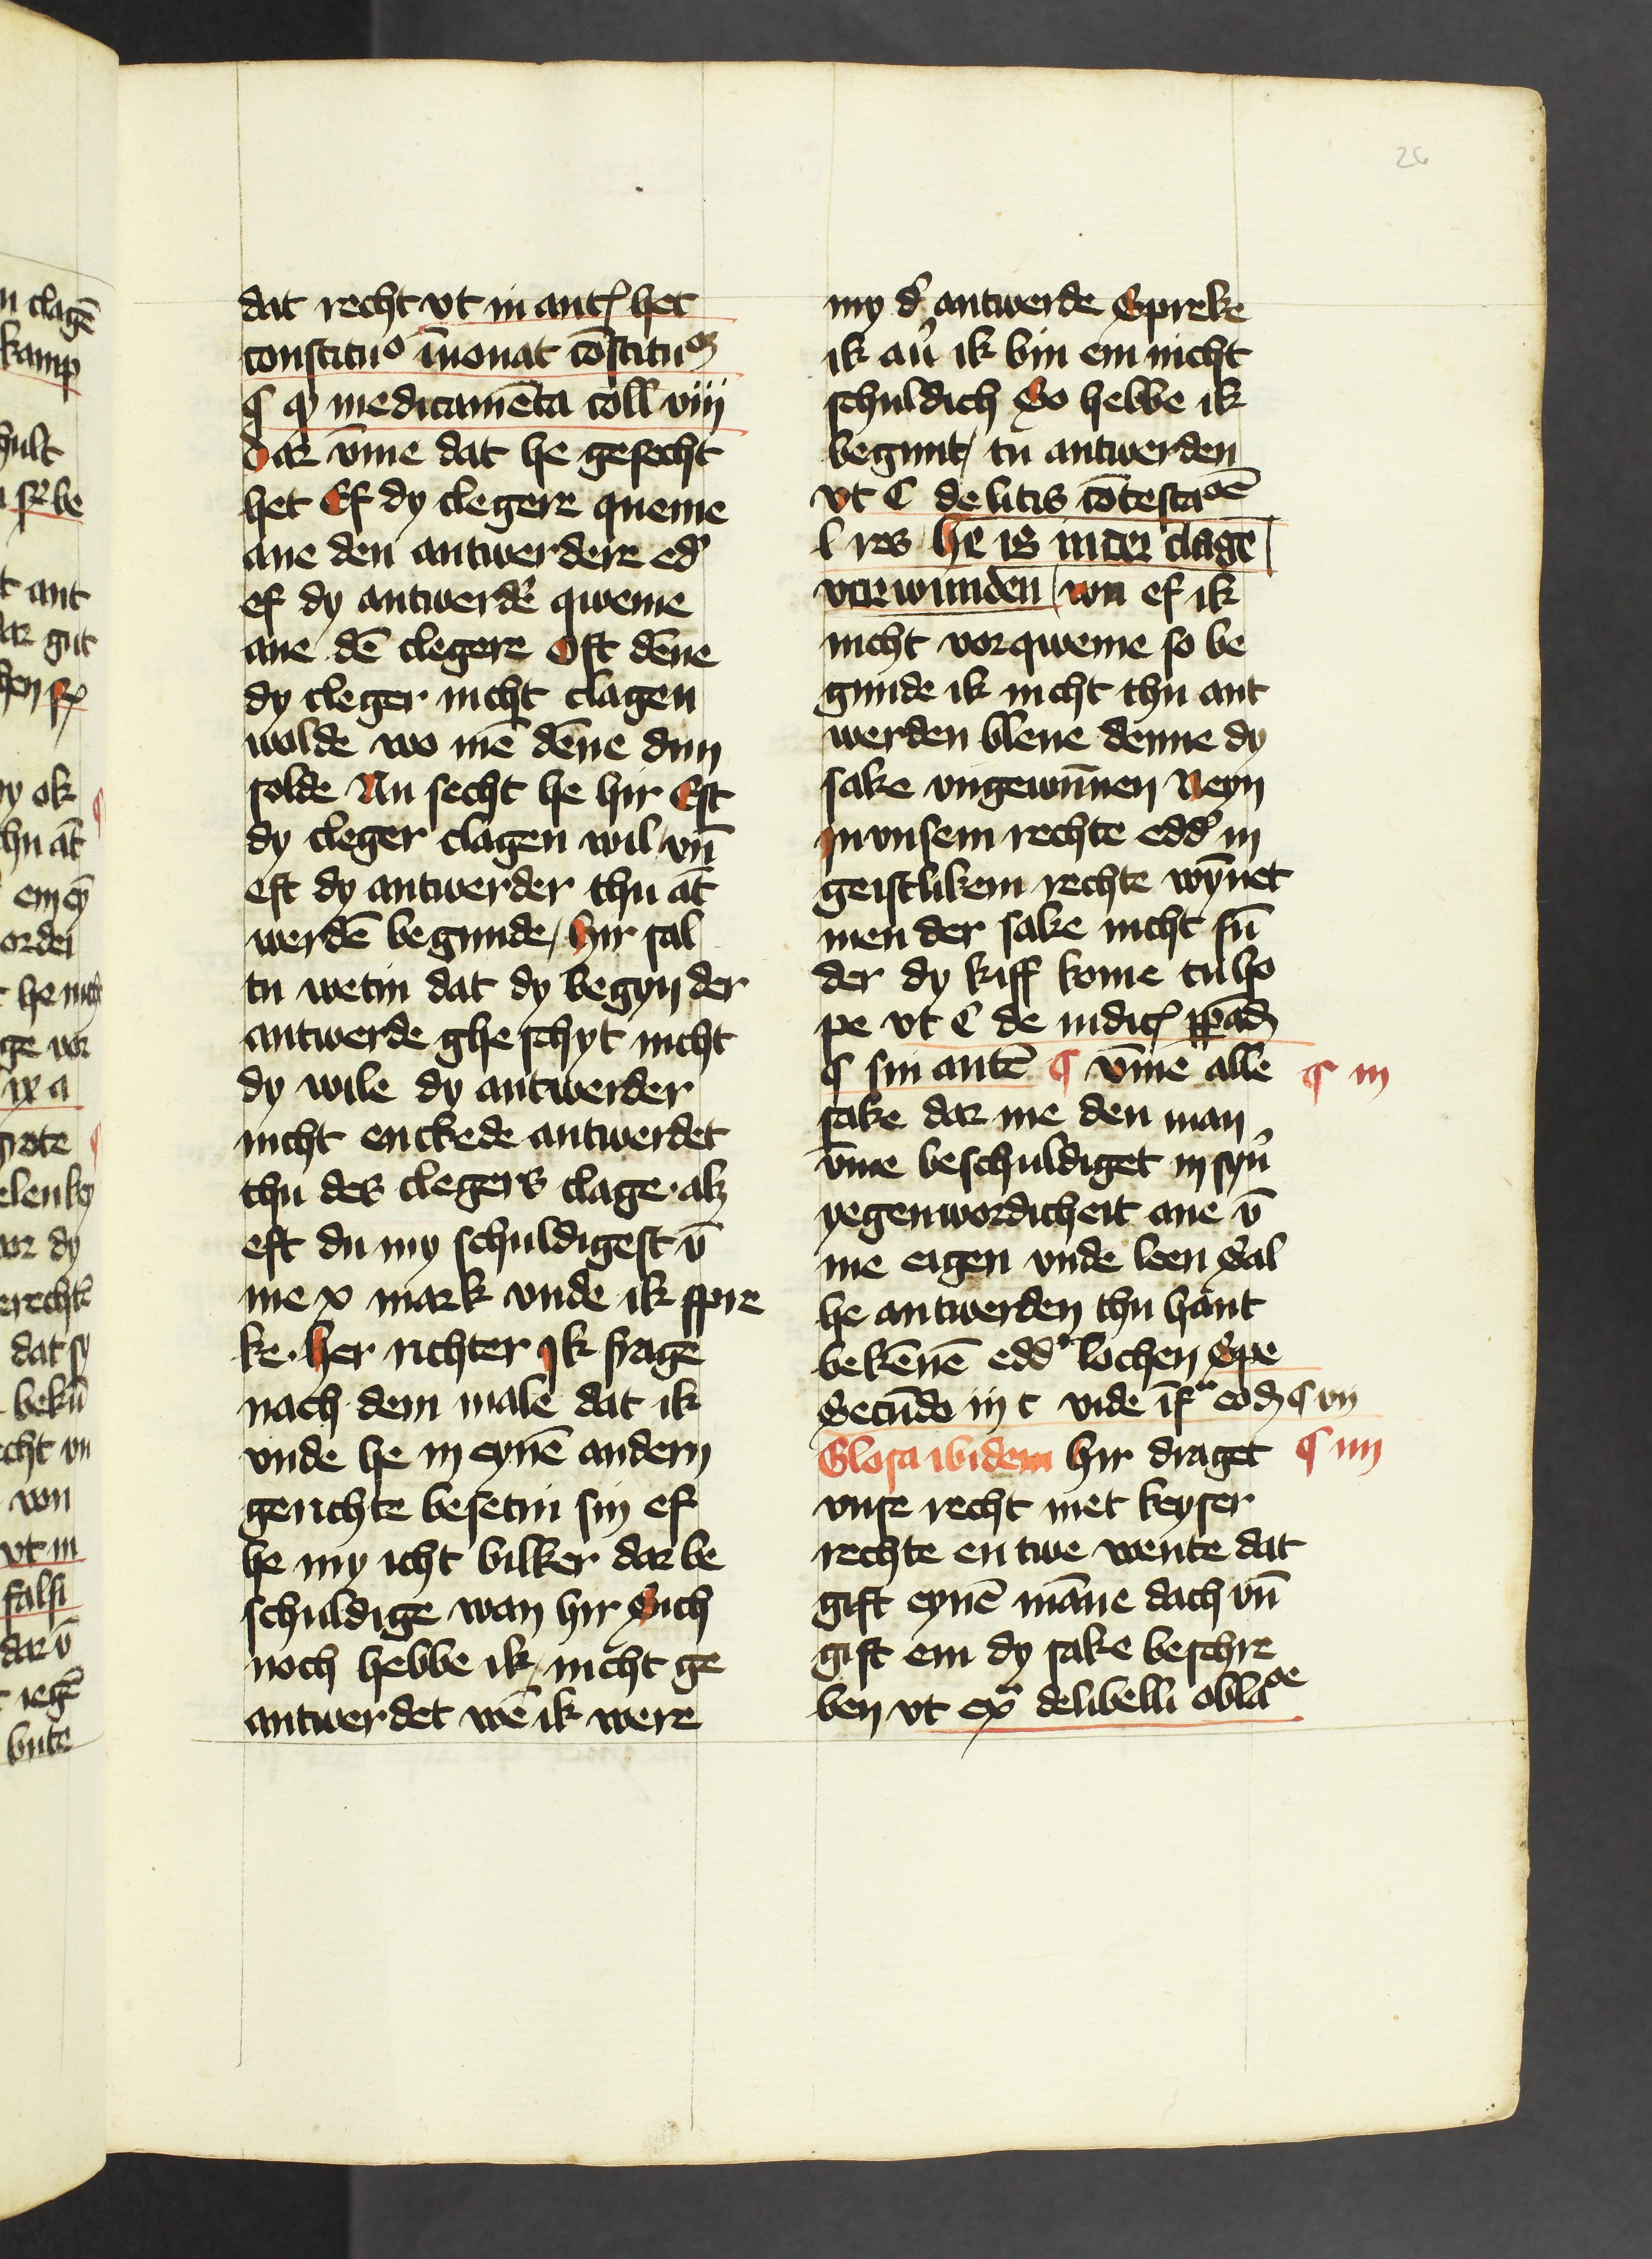 26
dat recht vt in autꝭ hec
constituo īnouat cōstituoꝫ
¶ ꝙ medicamēta coll viij
Dar vm̄e dat he gesecht
het Ef dy clegere queme
ane den antwerdere ed'
ef dy antwerd'e qweme
ane dē clegere Oft dēne
dy cleger nicht clagen
wolde wo mē dēne dun
solde Nu secht he hir Eft
dy cleger clagen wil / vn̄
eft dy antwerder thu āt
werdē begunde / Hir sal
tu wetin dat dy begyn der
antwerde gheschyt nicht
dy wile dy antwerder
nicht enckede antwerdet
thu des clegers clage · alz
eft du my schuldigest v̄
me x mark vnde ik spre
ke · Her richter Ik frage
nach dem male dat ik
vnde he in eynē andern
gerichte besetin sin ef
he my icht bilker dar be
schuldige wan hir Sich
noch hebbe ik / nicht ge
antwerdet wē ik were
my d' antwerde Spreke
ik au' ik bin em nicht
schuldich So hebbe ik
begunt / tu antwerden
vt C de litis cōtestaoē
l res He is in der clage
verwunden / wu ef ik
nicht vorqweme so be
gunde ik nicht thu ant
werden bleue denne dy
sake vngewūnen Neyn
In vnsem rechte edd' in
geistlikem rechte wȳnet
men der sake nicht sūn
der dy kiff kome tuho
pe vt C de iudicꝭ
¶ sin autē ¶ vm̄e alle ¶ iii
sake dar me den man
vm̄e beschuldiget in syn'
yegenwordicheit ane v̄
me eigen vnde leen Sal
he antwerden thu hant
bekēnē edd' lochen Spe
Secūdo iij c vide īfᵃ eoꝺ ¶ vij
Glosa ibidem Hir draget ¶ iiii
vnse recht met keyser
rechte en twe wente dat
gift eynē māne dach vn̄
gift em dy sake beschre
ben vt exᵃ de libelli oblaoe